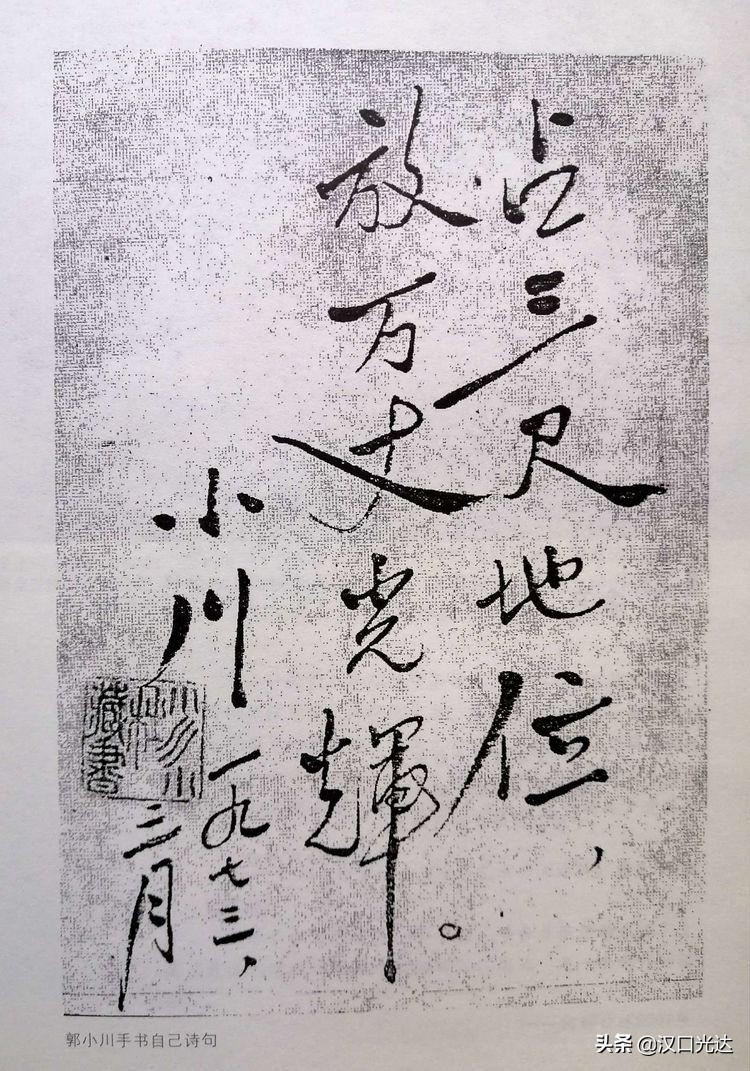 占三尺地位，
放万丈光輝。
小川
一九七三，
三月
藏書
郭小川手书自己诗句
头条 @汉口光达